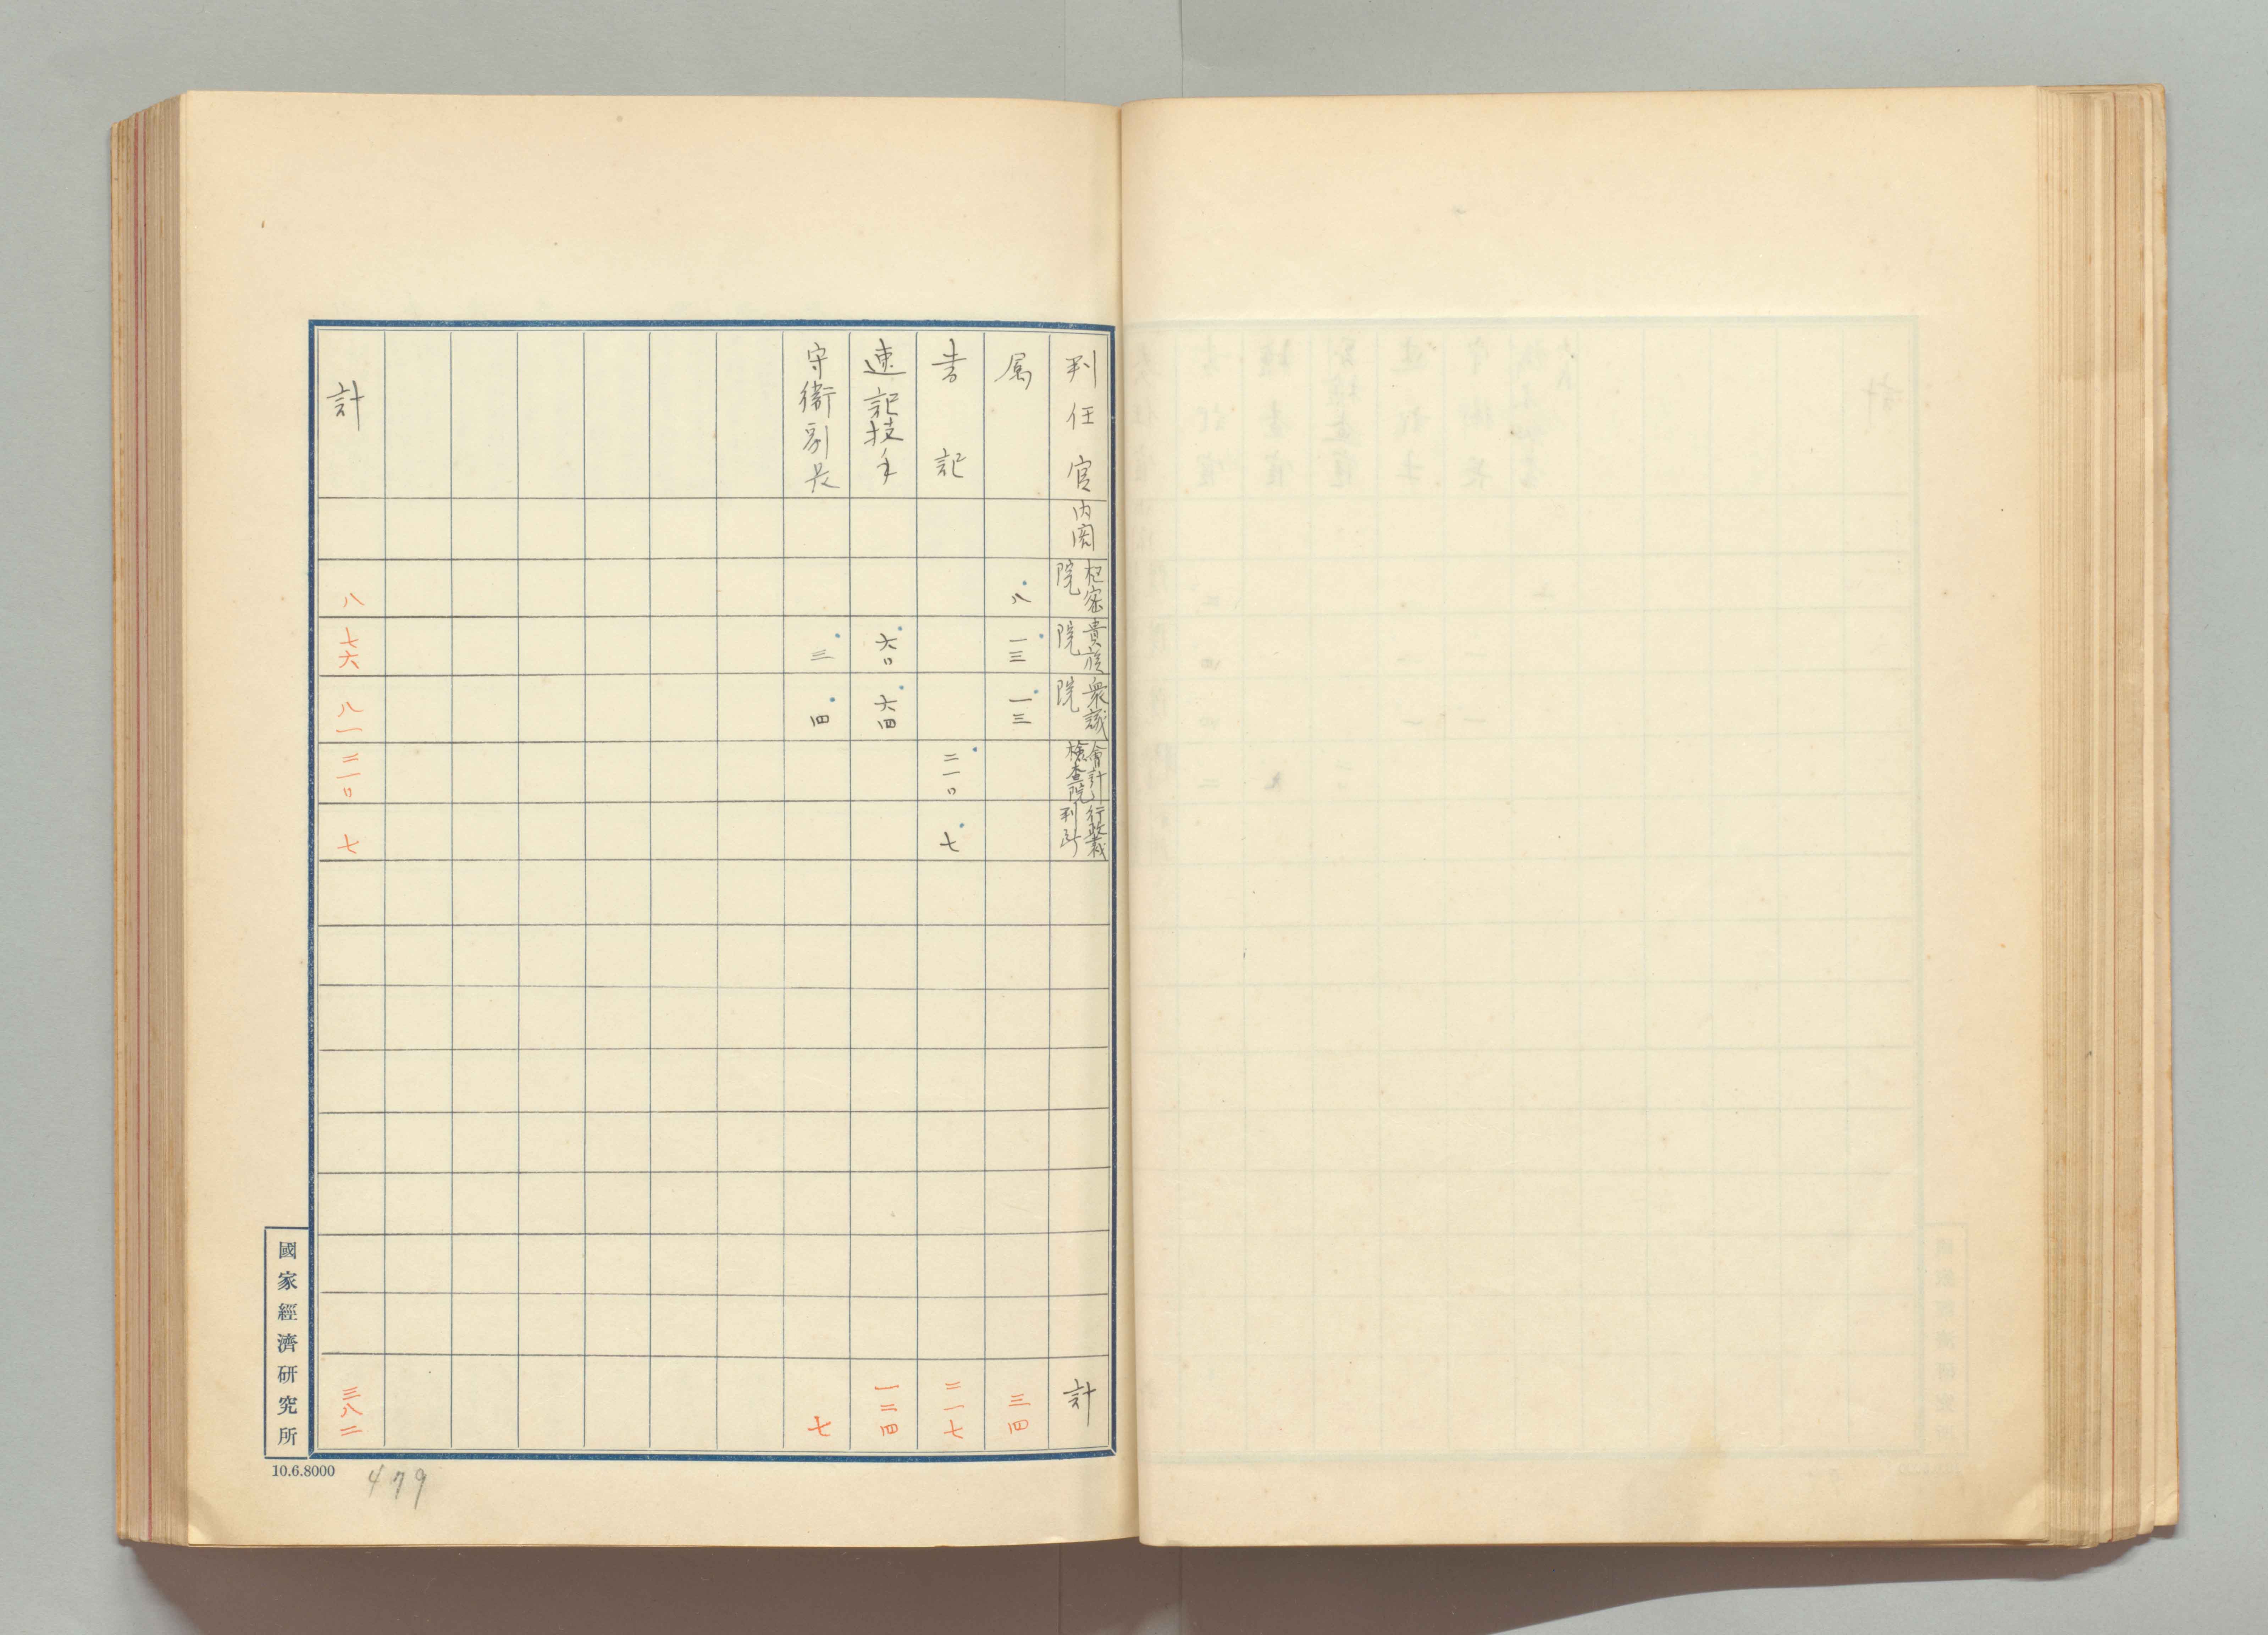 判任官
内閣
枢密院
貴族院
衆議院
會計検査院
行政裁判所
計
属
八
一三
一三
三四
書記
二一〇
七
二一七
速記技手
六〇
六四
一二四
守衛副長
三
四
七
計
八
七六
八一
二一〇
七
三八二
國家經濟研究所
10.6.8000
479